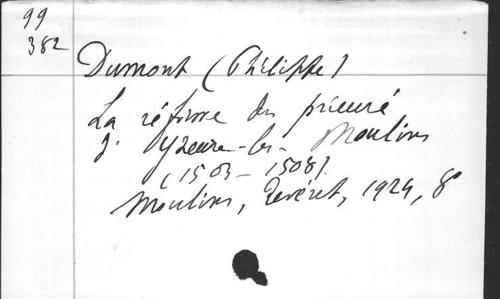 99
382
Dumont (Philippe)
La réforme du prieuré
d'Yzeure-les-Moulins
(1503-1508).
Moulins, Revéret, 1924, 8°